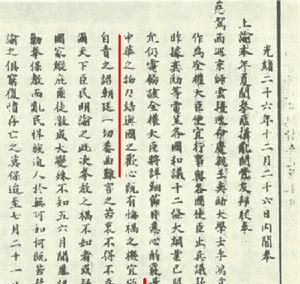 光緒二十六年十二月二十六日內閣奉
上諭本年夏間拳匪搆亂開釁友邦朕奉
慈駕西巡京師雲擾迭命慶親王奕劻大學士李鴻章
作為全權大臣便宜行事與各國使臣止兵議款
昨據奕劻等電呈各國和議十二條大綱業已照
允仍電飭該全權大臣將詳細節目悉心酌覈量
中華之物力結與國之歡心既有悔禍之機宜頒
自責之詔朝廷一切委曲難言之苦衷不得不為
爾天下臣民明諭之此次拳教之禍不知者咸疑
國家縱庇匪徒激成大變殊不知五六月間屢詔
勦拳保教而亂民悍族迫人於無可如何既苦禁
諭之俱窮復憤存亡之莫保迨至七月二十一日